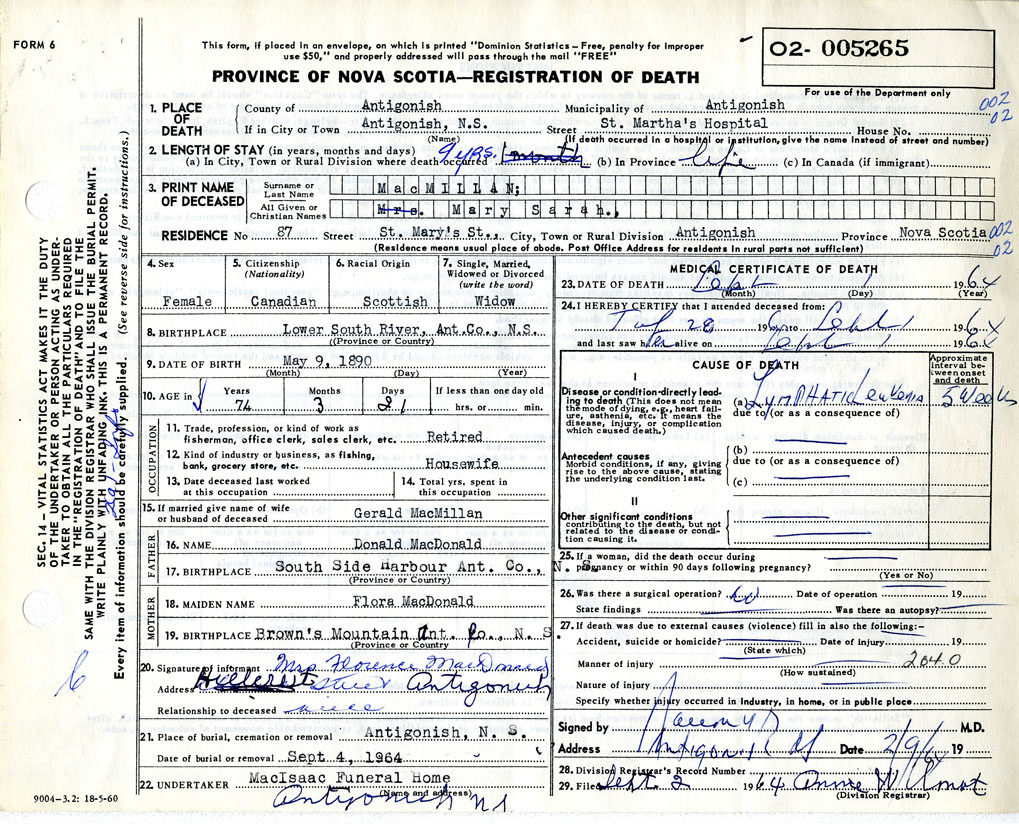 FORM 6
This form, if placed in an envelope, on which is printed "Dominion Statistics – Free, penalty for improper
use $50," and properly addressed will pass through the mail "FREE"
PROVINCE OF NOVA SCOTIA—REGISTRATION OF DEATH
02- 005265
For use of the Department only
002
02
1. PLACE OF DEATH
County of Antigonish Municipality of Antigonish
If in City or Town Antigonish, N.S. Street St. Martha's Hospital House No.
(Name) (If death occurred in a hospital or institution, give the name instead of street and number)
2. LENGTH OF STAY (in years, months and days)
(a) In City, Town or Rural Division where death occurred 9 yrs. 1 month (b) In Province life (c) In Canada (if immigrant)
3. PRINT NAME OF DECEASED
Surname or Last Name MacMILLAN;
All Given or Christian Names Mrs. Mary Sarah.,
RESIDENCE No 87 Street St. Mary's St., City, Town or Rural Division Antigonish Province Nova Scotia 002
02
(Residence means usual place of abode. Post Office Address for residents in rural parts not sufficient)
4. Sex
Female
5. Citizenship (Nationality)
Canadian
6. Racial Origin
Scottish
7. Single, Married, Widowed or Divorced (write the word)
Widow
8. BIRTHPLACE Lower South River, Ant.Co., N.S.
(Province or Country)
9. DATE OF BIRTH May 9, 1890
(Month) (Day) (Year)
10. AGE in
Years 74
Months 3
Days 21
If less than one day old
hrs. or min.
OCCUPATION
11. Trade, profession, or kind of work as
fisherman, office clerk, sales clerk, etc. Retired
12. Kind of industry or business, as fishing,
bank, grocery store, etc. Housewife
13. Date deceased last worked
at this occupation
14. Total yrs. spent in
this occupation
15. If married give name of wife
or husband of deceased Gerald MacMillan
FATHER
16. NAME Donald MacDonald
17. BIRTHPLACE South Side Harbour Ant. Co., N. S.
(Province or Country)
MOTHER
18. MAIDEN NAME Flora MacDonald
19. BIRTHPLACE Brown's Mountain Ant. Co., N. S.
(Province or Country)
20. Signature of informant Mrs Florence MacDonald
Address Hillcrest Street Antigonish
Relationship to deceased niece
21. Place of burial, cremation or removal Antigonish, N. S.
Date of burial or removal Sept 4, 1964
22. UNDERTAKER MacIsaac Funeral Home
(Name and address)
Antigonish NS
9004–3.2: 18-5-60
MEDICAL CERTIFICATE OF DEATH
23. DATE OF DEATH Sept 1 1964
(Month) (Day) (Year)
24. I HEREBY CERTIFY that I attended deceased from:
28 19 to Sept 1 1964
and last saw her alive on Sept 1 1964
CAUSE OF DEATH
Approximate interval between onset and death
I
Disease or condition directly leading to death (This does not mean the mode of dying, e.g., heart failure, asthenia, etc. It means the disease, injury, or complication which caused death.)
(a) Lymphatic Leukemia 5 Weeks
due to (or as a consequence of)
Antecedent causes
Morbid conditions, if any, giving rise to the above cause, stating the underlying condition last.
(b)
due to (or as a consequence of)
(c)
II
Other significant conditions
contributing to the death, but not related to the disease or condition causing it.
25. If a woman, did the death occur during
pregnancy or within 90 days following pregnancy?
(Yes or No)
26. Was there a surgical operation? No Date of operation 19
State findings Was there an autopsy?
27. If death was due to external causes (violence) fill in also the following:–
Accident, suicide or homicide? Date of injury 19
(State which)
Manner of injury 2040
(How sustained)
Nature of injury
Specify whether injury occurred in industry, in home, or in public place
Signed by M.D.
Address Antigonish NS Date 2/9/64 19
28. Division Registrar's Record Number
29. Filed Sept. 2 1964 Annie Wilmot
(Division Registrar)
SEC. 14 – VITAL STATISTICS ACT MAKES IT THE DUTY
OF THE UNDERTAKER OR PERSON ACTING AS UNDER-
TAKER TO OBTAIN ALL THE PARTICULARS REQUIRED
IN THE "REGISTRATION OF DEATH" AND TO FILE THE
SAME WITH THE DIVISION REGISTRAR WHO SHALL ISSUE THE BURIAL PERMIT.
WRITE PLAINLY WITH UNFADING INK. THIS IS A PERMANENT RECORD.
Every item of information should be carefully supplied. (See reverse side for instructions.)